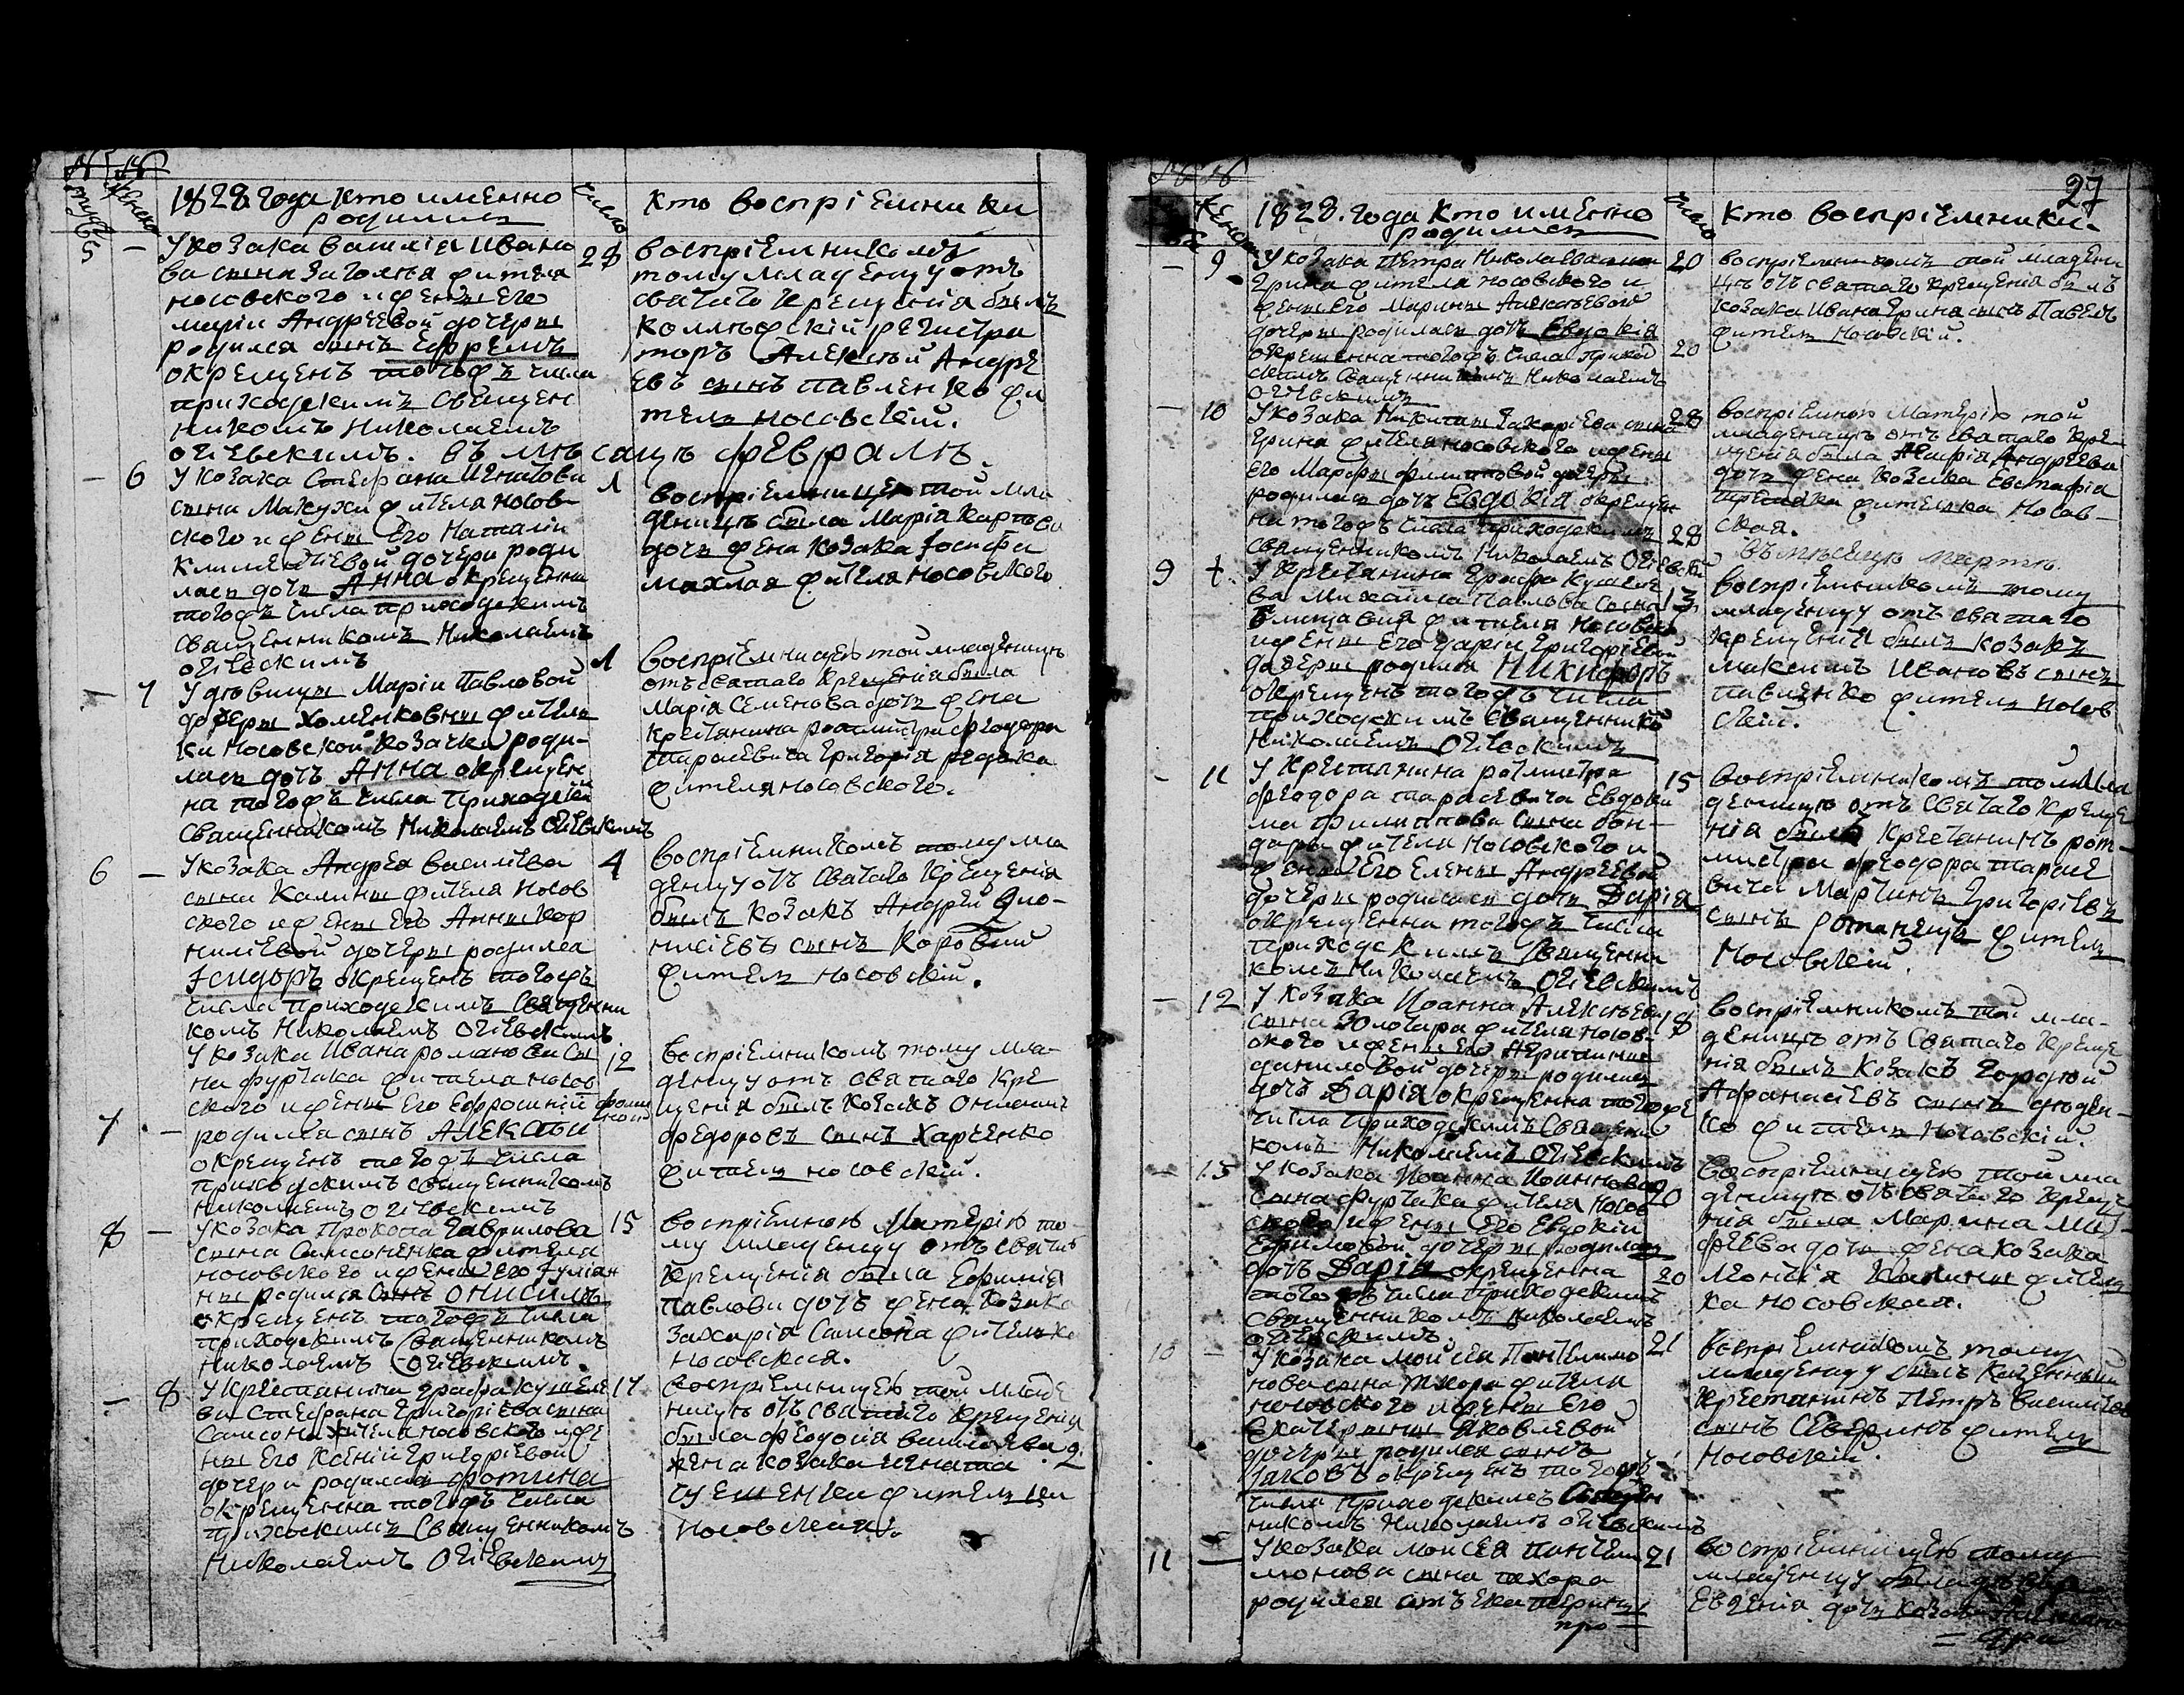 1828 года кто именно
родились
число
кто воспріемники
5 — У козака Василія Ивано 28
ва сына Заголья жителя
носовского и жены Его
маріи Андреевой дочеры
родился сынъ Ефремъ
окрещенъ тогожъ числа
приходскимъ Священ
никомъ Николаемъ
огіевскимъ.
воспріемникомъ
тому младенцу отъ
святаго крещенія былъ
коллежскій регистра
торъ Алексѣй Андре
евъ сынъ павленко жи
тель носовскій.
въ мѣсяцѣ февралѣ
— 6 У козака Стефана Игнатова 1
сына Мажухи жителя носов
ского и жены Его Наталіи
климентіевой дочери роди
лась дочь Анна окрещенна
тогожъ числа приходскимъ
священникомъ Николаемъ
огіевскимъ
воспріемницею той мла
деницѣ была Марія Карпова
дочь жена козака Іосифа
махлая жителя носовского
— 7 У дѣвицы Маріи Павловой 1
дочеры Хоменковны жител
ки Носовской козачки роди-
лась дочь Анна окрещен
на тогожъ числа приходскимъ
священникомъ Николаемъ Огіевскимъ
воспріемницею той младеницѣ
отъ святаго крещенія была
Марія Семенова дочь жена
крестянина ротмистра феодора
Тарасевича Григорія редька
жителя носовского.
6 — У козака Андрея василіева 4
сына Калины жителя Носов
ского и жены Его Анны Кор
нилиевой дочеры родился
Ісидоръ окрещенъ тогожъ
числа приходскимъ Священни
комъ Николаемъ Огіевскимъ
воспріемникомъ тому мла
денцу отъ Святаго крещенія
былъ козакъ Андрей Дио-
нисіевъ сынъ Коровай
житель носовскій.
7 — У козака Ивана романова сы 12
на фурсика жителя носов
ского и жены Его Ефросиніи
родился сынъ Алексѣй
окрещенъ тогожъ числа
приходскимъ священникомъ
николаемъ огіевскимъ
воспріемникомъ тому мла-
денцу отъ святаго кре
щенія былъ козакъ Онисимъ
федоровъ сынъ Харченко
житель носовскій.
8 — У козака Прокопа Гаврилова 15
сына Самсоненка жителя
носовского и жены Его Іуліан
ны родился сынъ Онисимъ
окрещенъ тогожъ числа
приходскимъ Священникомъ
Николаемъ Огіевскимъ.
воспріемною Матерію то
му младенцу отъ святаго
крещенія была Ефимія
павлова дочь жена козака
Захарія Самсона жителька
Носовская.
— 8 У крестянина графа кушеле 17
ва Стефана Григоріева сына
Самсона жителя носовского и же
ны Его Ксеніи Григоріевой
дочери родилась фотина
окрещенна тогожъ числа
приходскимъ Священникомъ
Николаемъ Огіевскимъ
воспріемницею той младе
ницѣ отъ святаго крещенія
была феодосія василіева д.
жена козака игната
носовская.
27
1828. года кто именно
родились
число
кто воспріемники.
— 9 У козака Петра Николаева сына 20
Ярина жителя носовского и
жены Его Марины Алексѣевой
дочеры родилась дочь Евдокія
окрещенна тогожъ числа приход 20
скимъ Священникомъ Николаемъ
огіевскимъ
воспріемникомъ той младени
цѣ отъ святаго крещенія былъ
козака Ивана Ярина сынъ Павелъ
житель Носовскій.
— 10 У козака Никиты Захаріева сына 28
Ярина жителя носовского и жены
Его Марфы филиповой дочеры
родилась дочь Евдокія окрещен
на тогожъ числа приходскимъ 28
священникомъ Николаемъ Огіевски
воспріемною Матерію той
младеницѣ отъ святаго кре
щенія была Марія Андреева
дочь жена козака Евстафія
жителька Носов
ская.
въ мѣсяцѣ мартѣ
9 + У Крестянина Графа Кушеле 13
ва Михаила Павлова сына
жителя Носовско
и жены Его Даріи Григоріевой
дочеры родился Никифоръ
окрещенъ тогожъ числа
приходскимъ Священнико
Николаемъ Огіевскимъ
воспріемникомъ тому
младенцу отъ святаго
крещенія былъ козакъ
максимъ Ивановъ сынъ
павленко житель носов
скій.
— 11 У Крестянина ротмистра 15
феодора тарасевича Евдоки
ма филиппова сына бон-
даря жителя Носовского и
жены Его Елены Андреевой
дочеры родилась дочь Дарія
окрещенна тогожъ числа
приходскимъ Священни
комъ Николаемъ Огіевскимъ
воспріемникомъ той мла
деницѣ отъ Святаго Креще
нія былъ крестянинъ рот-
мистра феодора тарасе
вича Мартинъ Григоріевъ
сынъ романецъ житель
Носовскій.
— 12 У козака Иоанна Алексѣева 18
сына Золотара жителя Носов-
ского и жены Его
даниловой дочеры родилась
дочь Дарія окрещенна тогоже
числа приходскимъ Священи
комъ Николаемъ Огіевскимъ
воспріемникомъ той мла-
деницѣ отъ Святаго Креще
нія былъ Козакъ Гордѣй
Афанасіевъ сынъ дюден-
ко житель Носовскій.
— 13 У козака Иоанна Иоаннова 20
сына фурсика жителя Носов
ского и жены Его Евдокіи
Ефимовой дочеры родилась
дочь Дарія окрещенна 20
тогожъ числа приходскимъ
священникомъ Николаемъ
огіевскимъ.
воспріемницею той мла
деницѣ отъ святаго креще
нія была Марина Мат
феева дочь жена козака
Леонтія Калины жител
ка носовская.
10 — У козака Мойсея Пантелимо 21
нова сына тхора жителя
носовского и жены Его
Екатерины Яковлевой
дочеры родился сынъ
Іаковъ окрещенъ тогожъ
числа приходскимъ Священ
никомъ Николаемъ огіевскимъ
воспріемникомъ тому
младенцу былъ казенный
крестянинъ Петръ василіевъ
сынъ Северинъ житель
Носовскій.
11 — У козака Моисея Пантели 21
монова сына тхора
родился отъ Екатерины
про
воспріемницею тому
младенцу была
Евгенія дочь козака